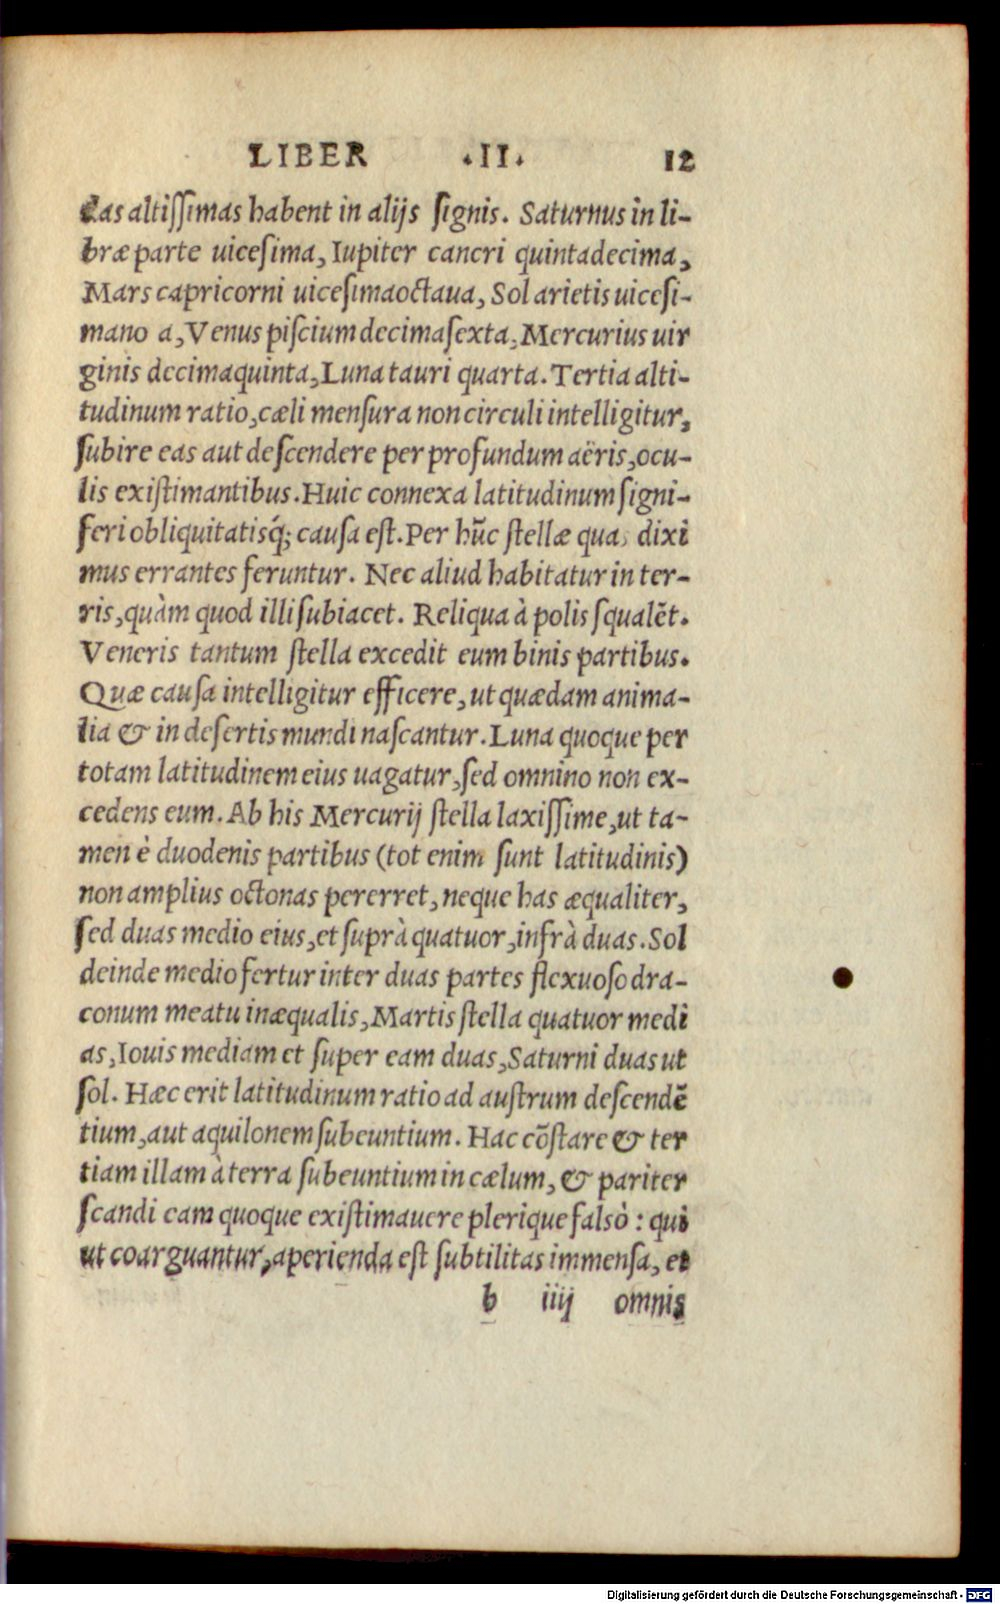 LIBER .II. 12
Eas altiſſimas habent in alijs ſignis. Saturnus in li-
bræ parte uiceſima, Iupiter cancri quintadecima,
Mars capricorni uiceſimaoctaua, Sol arietis uiceſi-
mano a, Venus piſcium decimaſexta, Mercurius uir
ginis decimaquinta, Luna tauri quarta. Tertia alti-
tudinum ratio, cæli menſura non circuli intelligitur,
ſubire eas aut deſcendere per profundum aëris, ocu-
lis exiſtimantibus. Huic connexa latitudinum ſigni-
feri obliquitatisq́; cauſa eſt. Per hūc ſtellæ quas dixi
mus errantes feruntur. Nec aliud habitatur in ter-
ris, quàm quod illi ſubiacet. Reliqua à polis ſqualēt.
Veneris tantum ſtella excedit eum binis partibus.
Quæ cauſa intelligitur efficere, ut quædam anima-
lia & in deſertis mundi naſcantur. Luna quoque per
totam latitudinem eius uagatur, ſed omnino non ex-
cedens eum. Ab his Mercurij ſtella laxiſſime, ut ta-
men è duodenis partibus (tot enim ſunt latitudinis)
non amplius octonas pererret, neque has æqualiter,
ſed duas medio eius, et ſuprà quatuor, infrà duas. Sol
deinde medio fertur inter duas partes flexuoſo dra-
conum meatu inæqualis, Martis ſtella quatuor medi
as, Iouis mediam et ſuper eam duas, Saturni duas ut
ſol. Hæc erit latitudinum ratio ad auſtrum deſcendē
tium, aut aquilonem ſubeuntium. Hac cōſtare & ter
tiam illam à terra ſubeuntium in cælum, & pariter
ſcandi eam quoque exiſtimauere plerique falsò : qui
ut coarguantur, aperienda eſt ſubtilitas immenſa, et
b iiij omnis
Digitalisierung gefördert durch die Deutsche Forschungsgemeinschaft - DFG